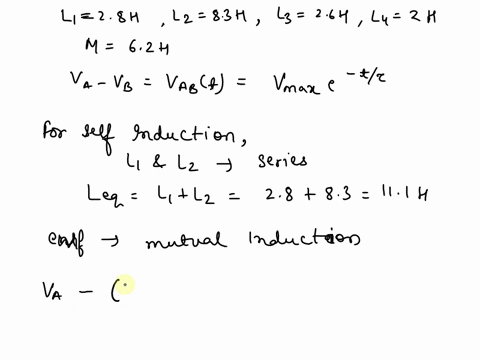 L₁=2.8H , L₂=8.3H , L₃=2.6H, L₄=2H
M = 6.2H
V_A - V_B = V_AB(t) = V_max e^(-t/τ)
For self Induction,
L₁ & L₂ → series
Leq = L₁+L₂ = 2.8 + 8.3 = 11.1 H
emf → mutual Induction
V_A - (